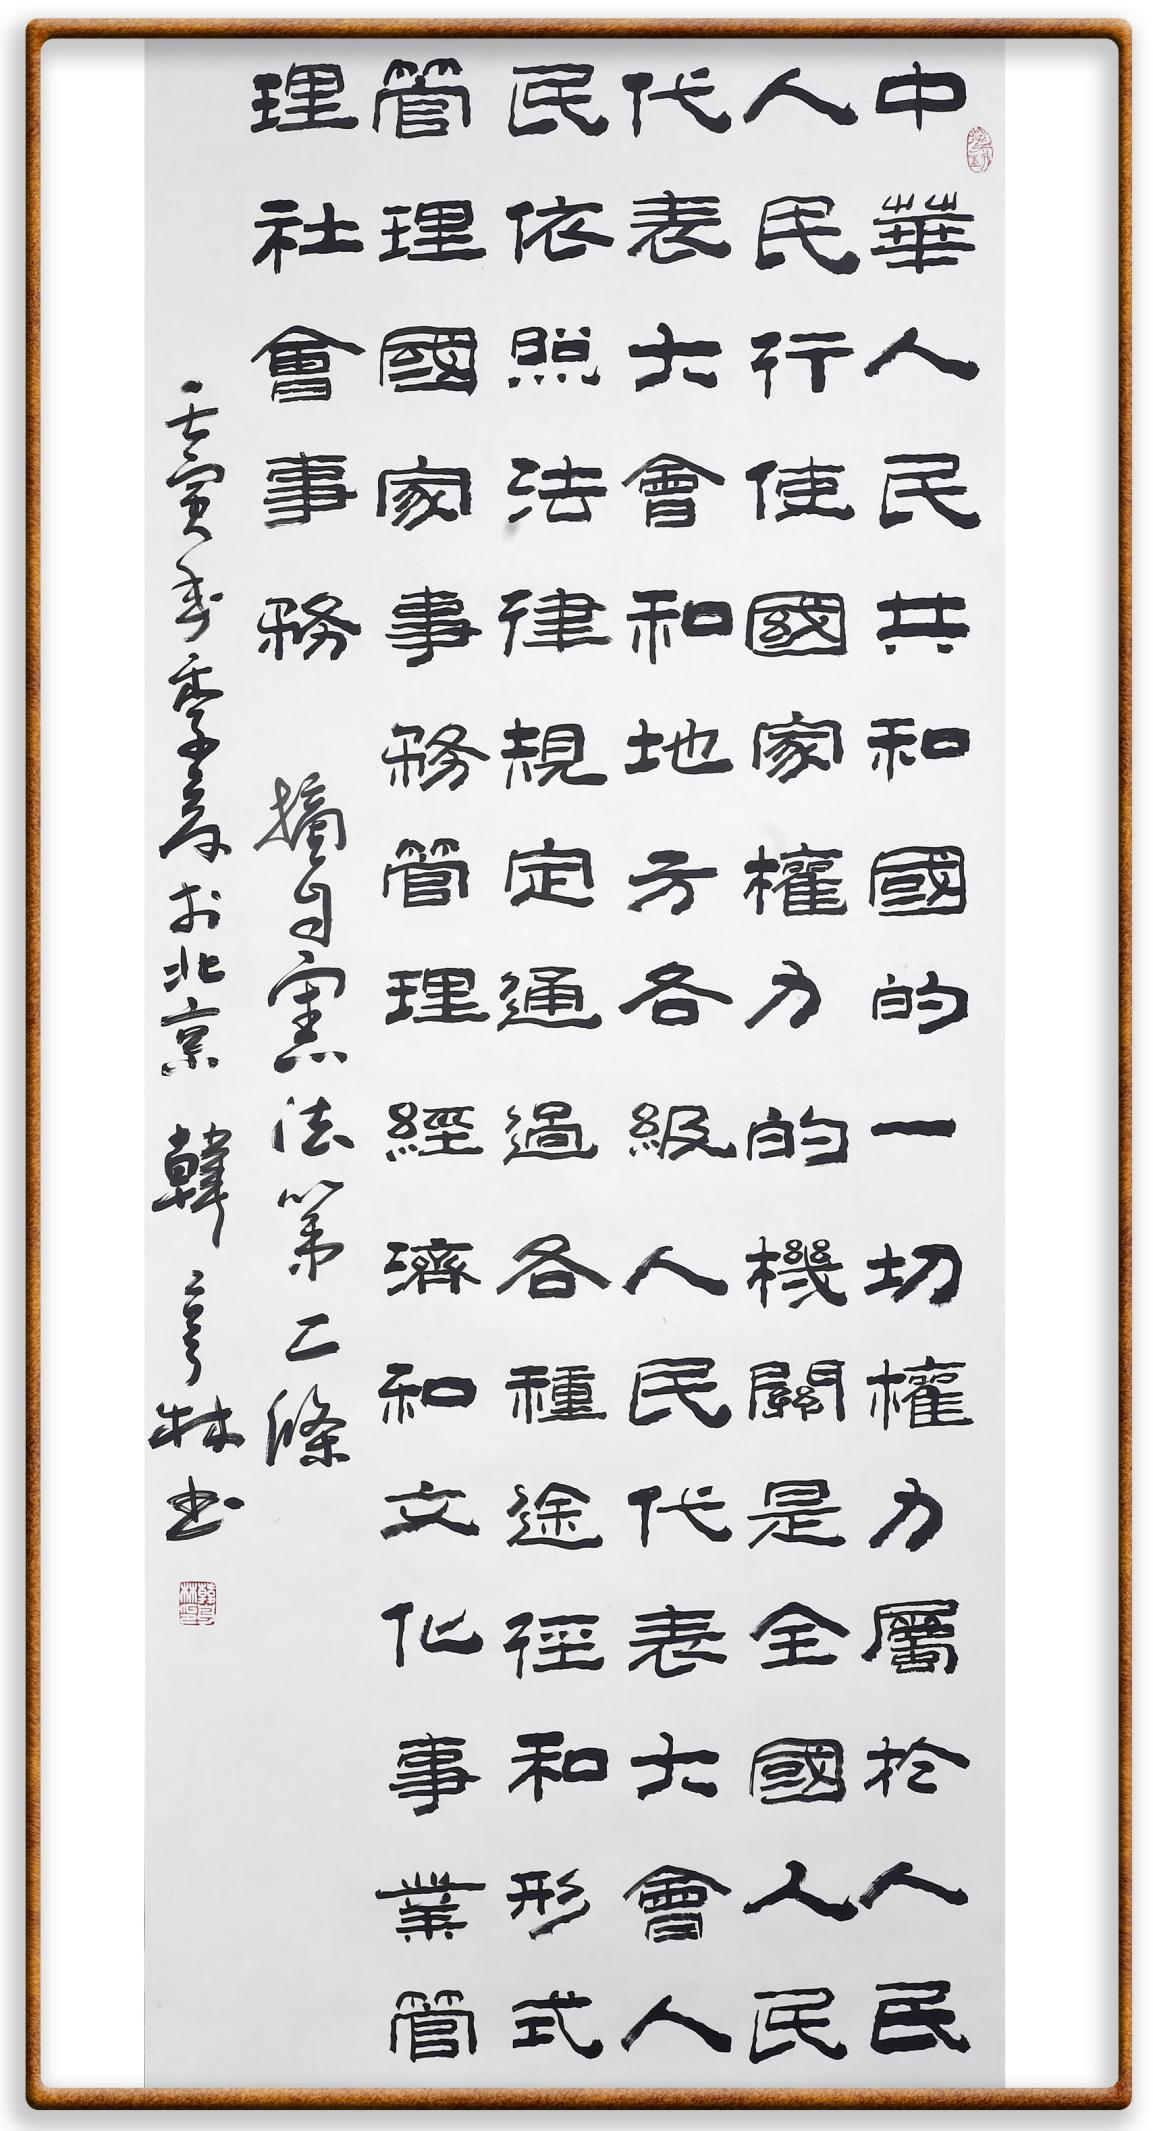 中華人民共和國的一切權力屬於人民
人民行使國家權力的機關是全國人民
代表大會和地方各級人民代表大會人
民依照法律規定通過各種途徑和形式
管理國家事務管理經濟和文化事業管
理社會事務
摘自憲法第二條
壬寅年季於北京 韓亨林书
韓亨林印